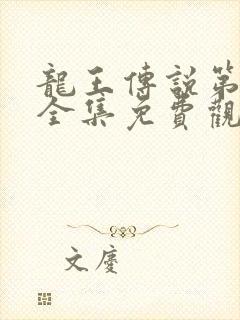 龍王傳說第
全集免費觀
文慶